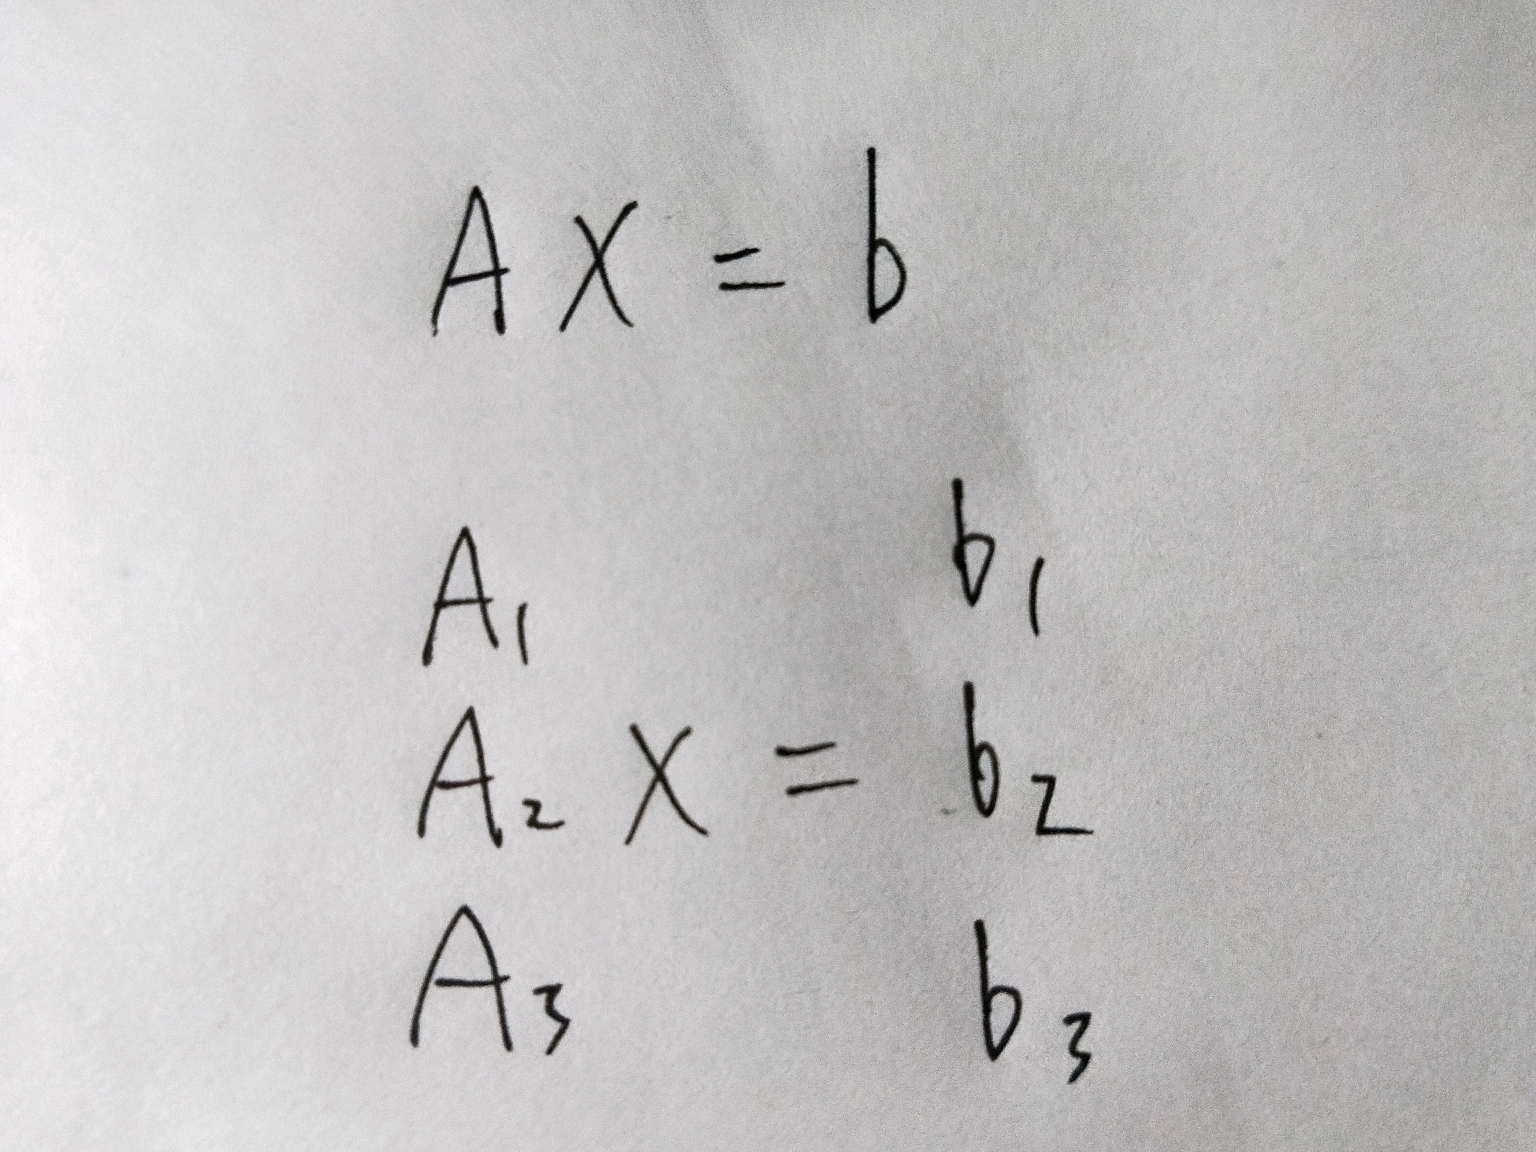 AX = b
A₁ b₁
A₂ X = b₂
A₃ b₃